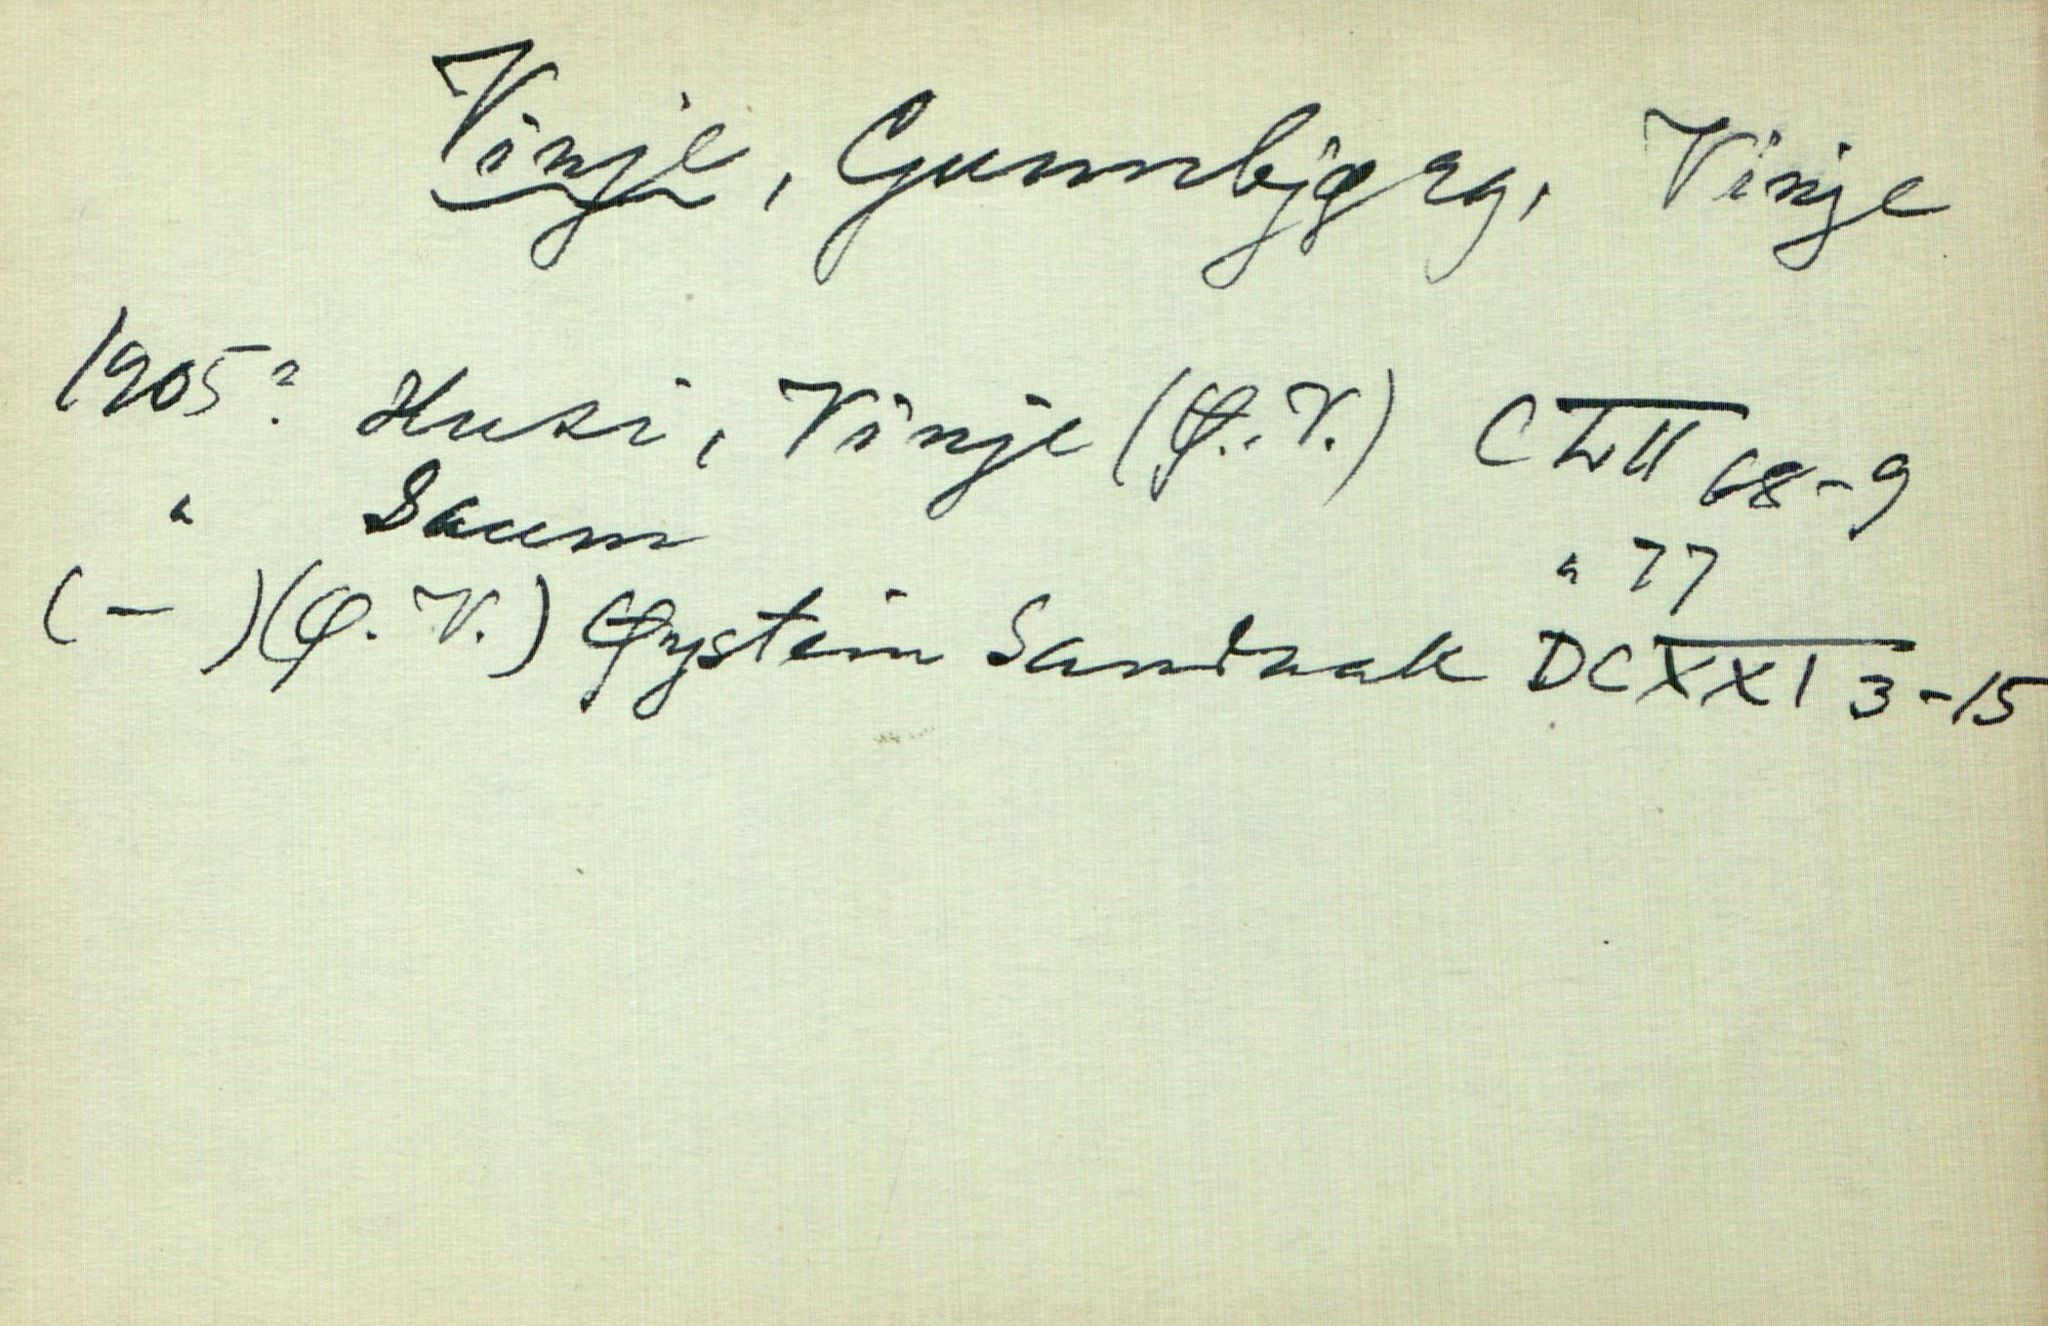 Vinje, Gunnbjørg, Vinje
1905? Husi, Vinje (Ø. V.) CLII 68-9
" Saum " 77
(-) (Ø. V.) Øystein Sandvak DCXXI 3-15